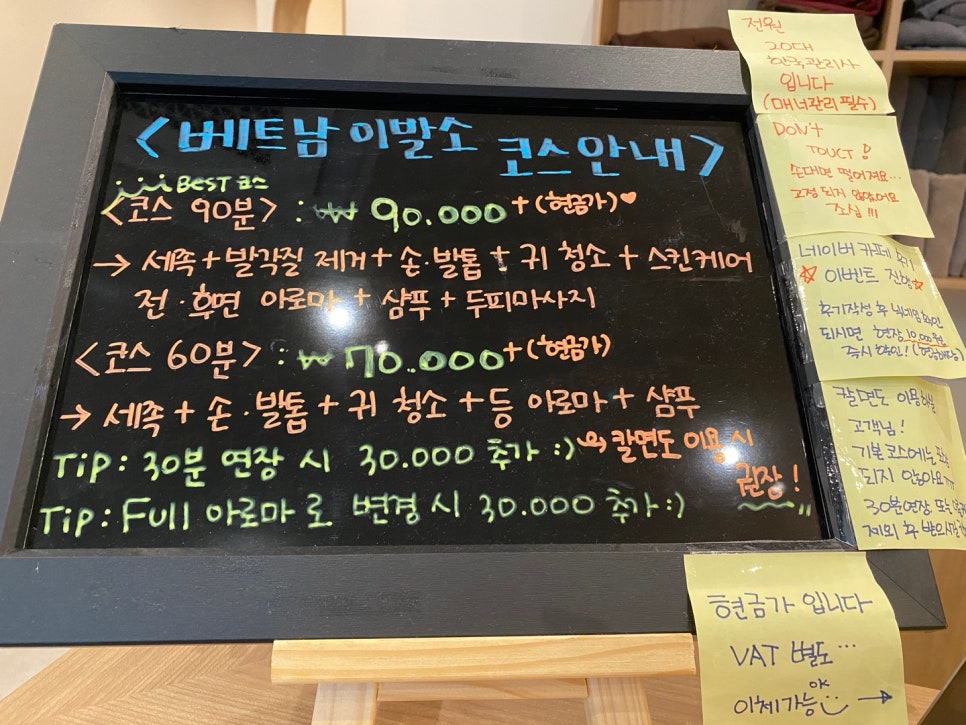 <베트남 이발소 코스안내>
BEST 코스
<코스 90분> : ₩ 90.000 + (현금가)♥
→ 세족 + 발각질 제거 + 손·발톱 + 귀 청소 + 스킨케어
전·후면 아로마 + 샴푸 + 두피마사지
<코스 60분> : ₩ 70.000 + (현금가)
→ 세족 + 손·발톱 + 귀 청소 + 등 아로마 + 샴푸
Tip : 30분 연장 시 30.000 추가 :)
칼면도 이용 시
권장!
Tip : Full 아로마로 변경 시 30.000 추가 :)
전원
20대
한국관리사
입니다
(매너관리 필수)
DON'T
TOUCT!
손대면 떨어져요...
고정 되지 않았어요
조심!!!
네이버 카페 후기
☆ 이벤트 진행 ☆
후기작성 후 닉네임 확인
되시면 현장 10,000원
즉시 할인! (현금해당)
칼면도 이용하실
고객님!
기본 코스에는
되지 않아요
30분연장 또는
제외 후 받으시길
현금가 입니다
VAT 별도...
OK
이체가능 →